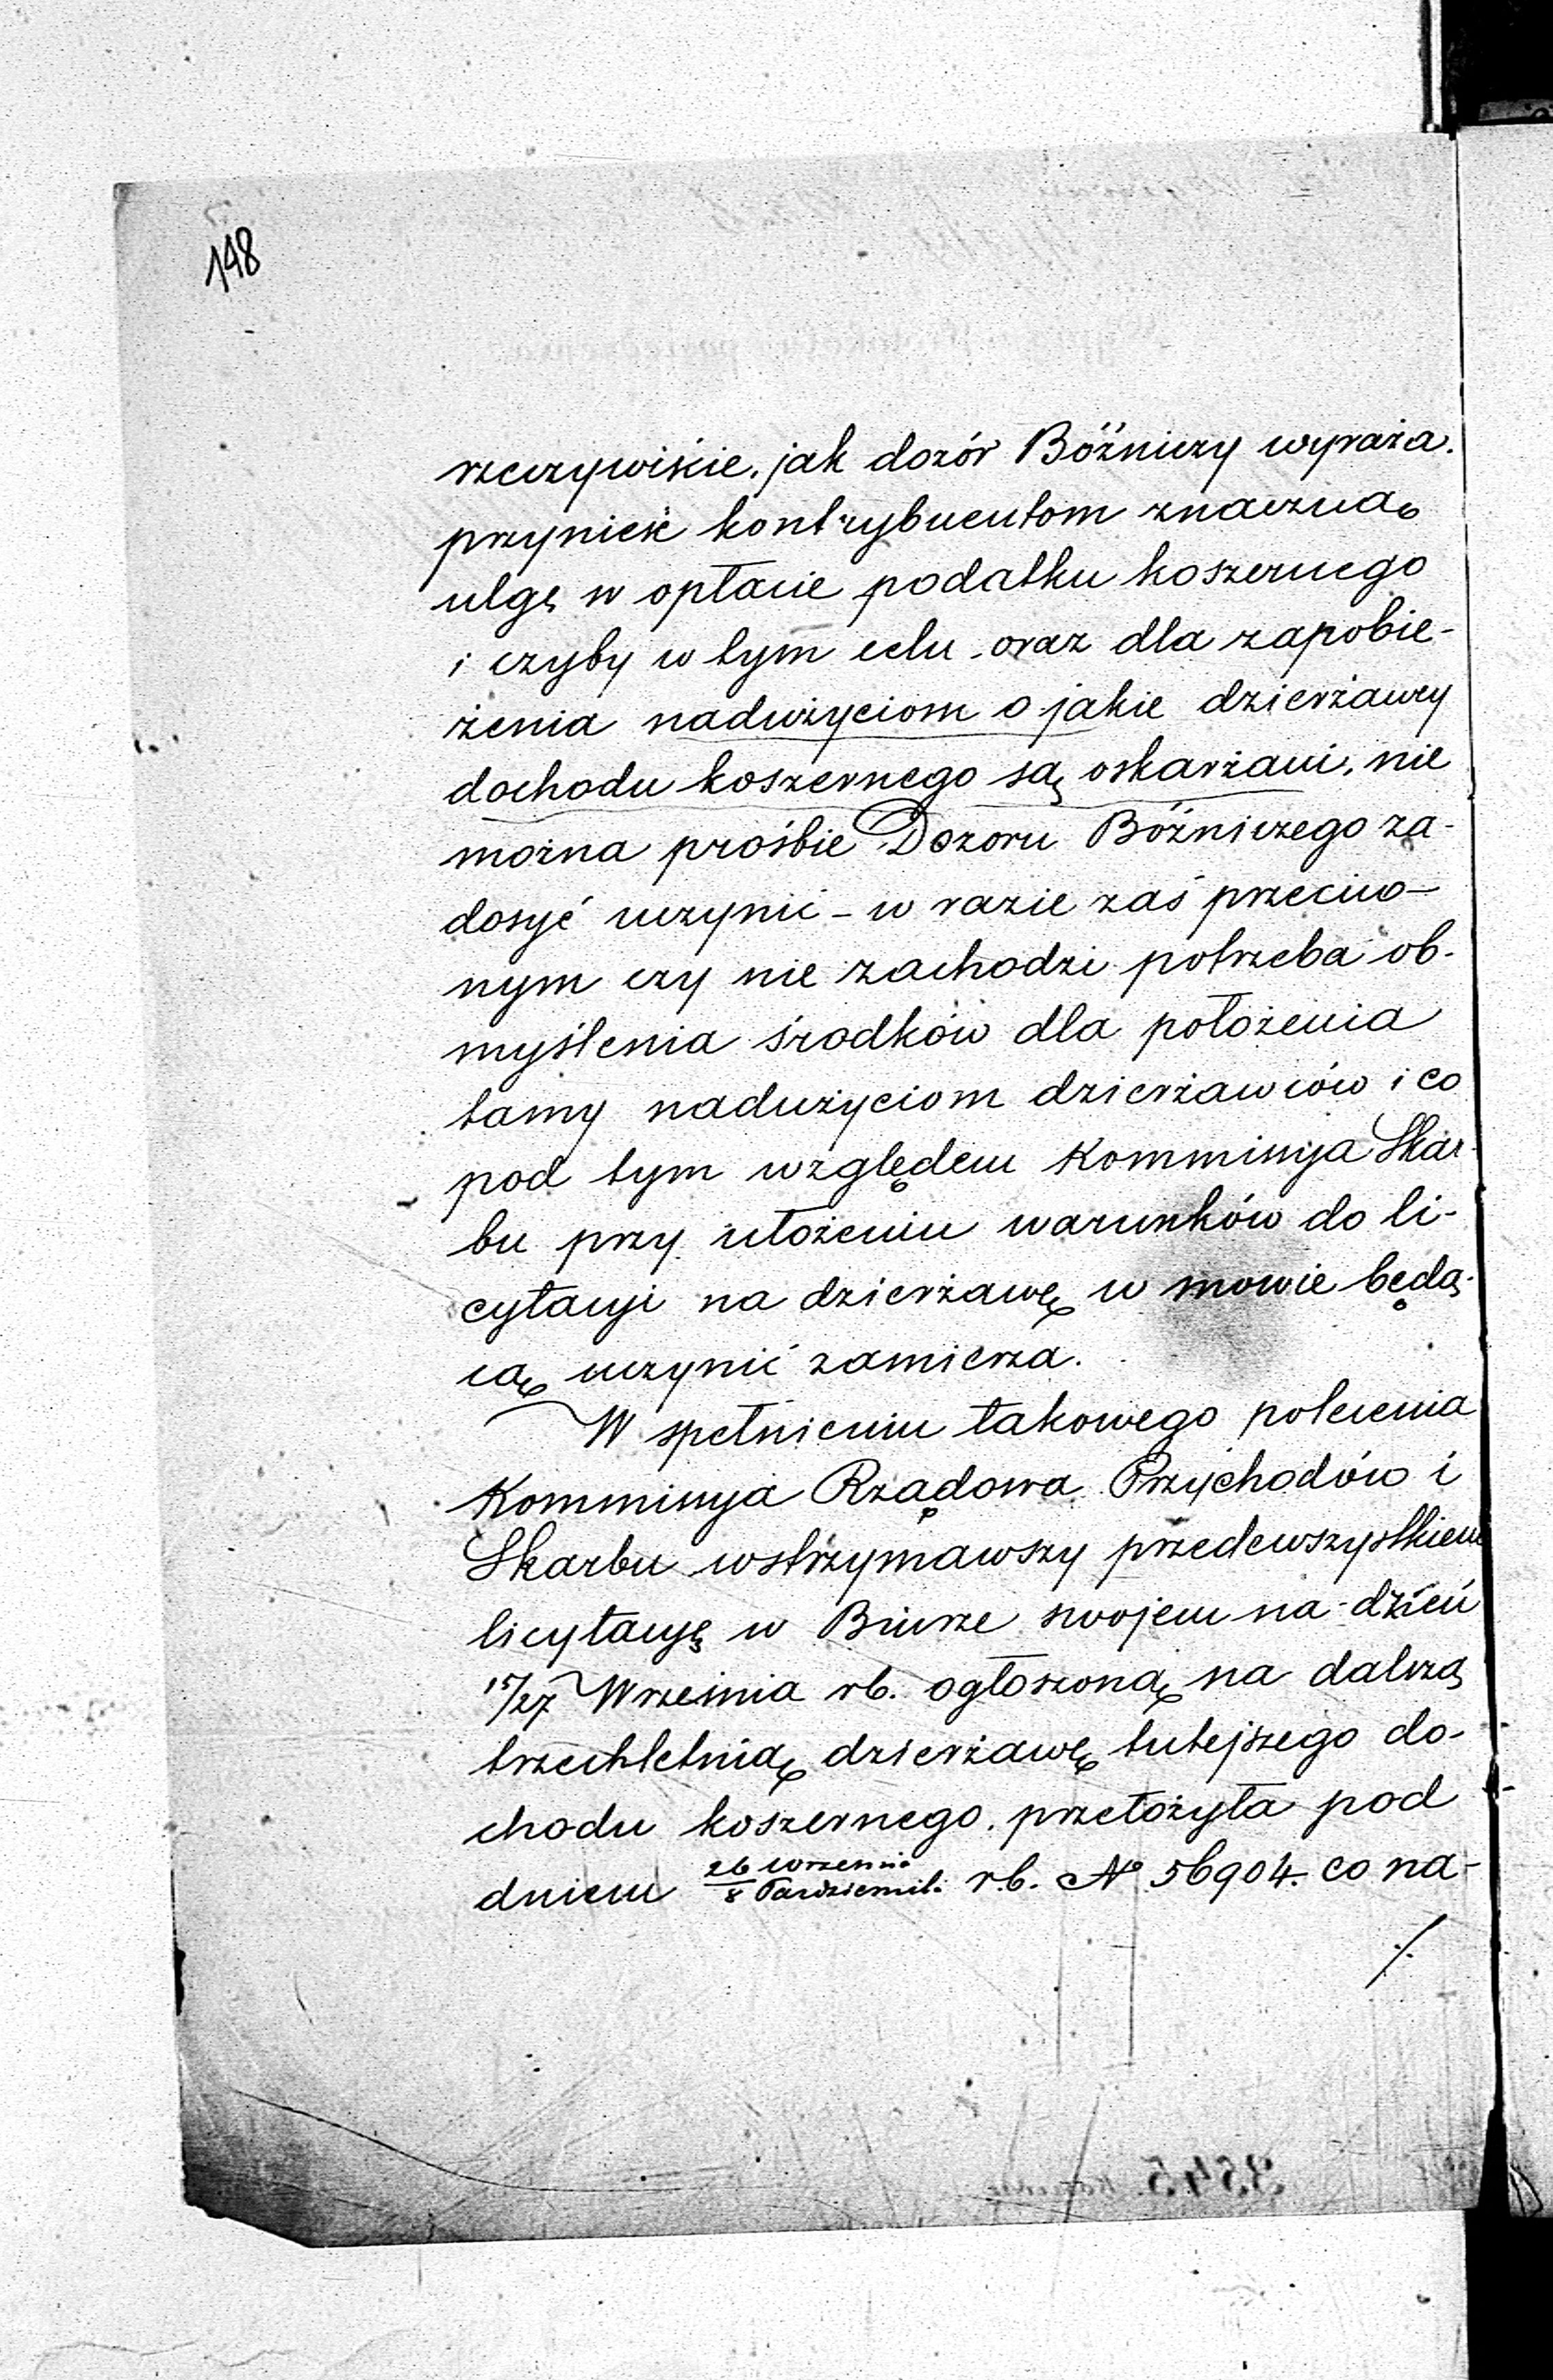 148
rzeczywiście, jak dozór Bóżniczy wyraża.
przynieść kontrybuentom znaczną
ulgę w opłacie podatku koszernego
i czyby w tym celu, oraz dla zapobie-
żenia nadużyciom o jakie dzierżawcy
dochodu koszernego są oskarżani, nie
można prośbie Dozoru Bóżniczego za-
dosyć uczynić - w razie zaś przeciw-
nym czy nie zachodzi potrzeba ob-
myślenia środków dla położenia
tamy nadużyciom dzierżawców i co
pod tym względem Kommissyja Skar-
bu przy ułożeniu warunków do li-
cytacyi na dzierżawę w mowie będą-
cą uczynić zamierza.
W spełnieniu takowego polecenia
Kommissyja Rządowa Przychodów i
Skarbu wstrzymawszy przedewszystkiem
licytacyę w Biurze swojem na dzień
15/27 Września rb. ogłoszoną na dalszą
trzechletnią dzierżawę tutejszego do-
chodu koszernego, przełożyła pod
dniem 26 września/8 Październik. r.b. № 56904. co na-
./.